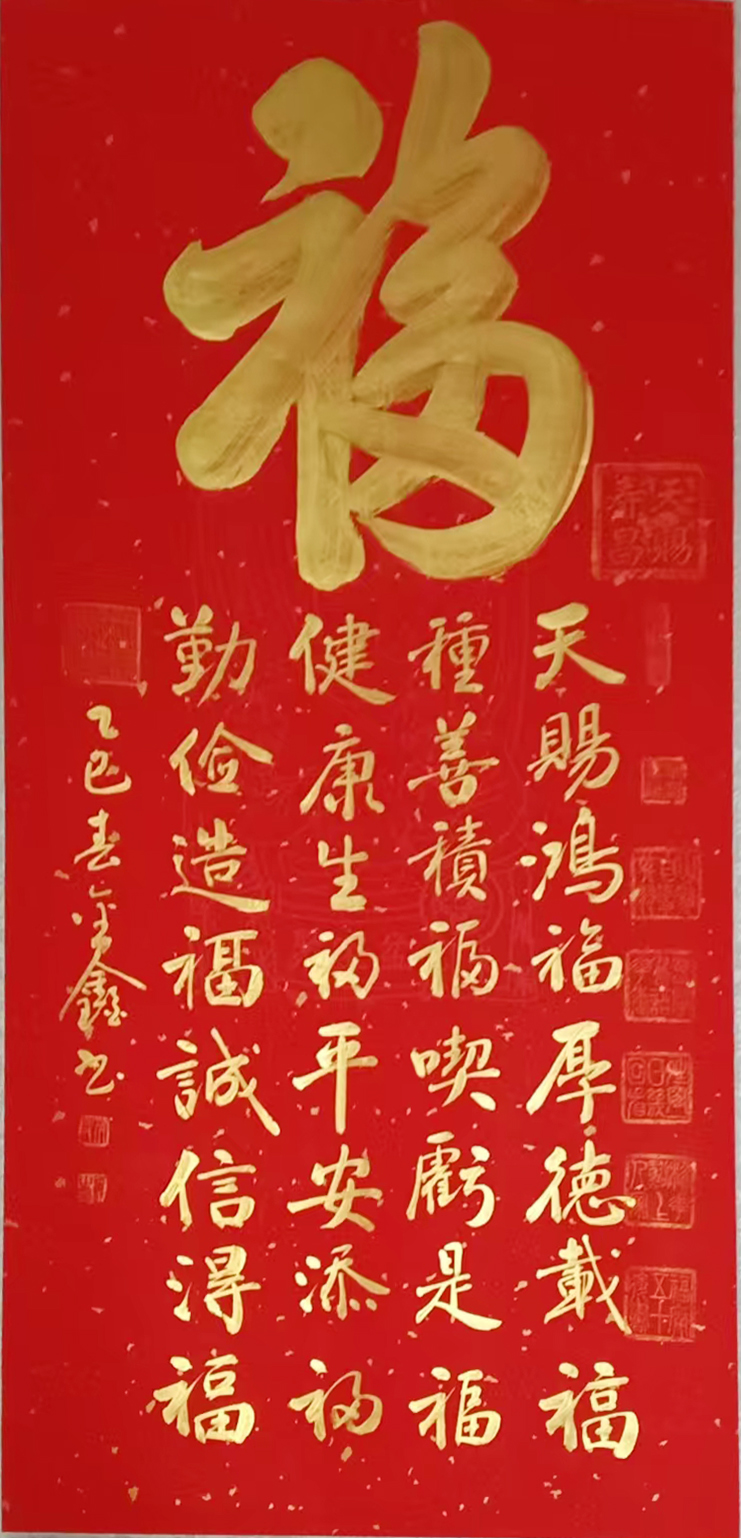 福
天賜鴻福厚德載福
種善積福喫虧是福
健康生福平安添福
勤俭造福誠信得福
乙巳春金鑫书